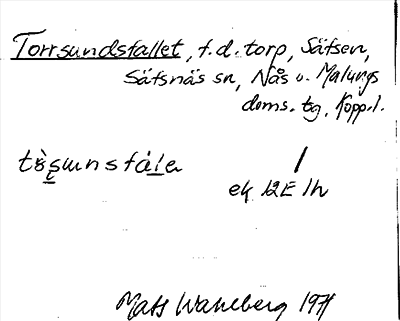 Torrsundsfallet, f.d. torp, Säfsen,
Säfsnäs sn, Nås o. Malungs
doms. tg, Kopp. l.
tòṣunsfála /
ek 12E 1h
Mats Wahlberg 1971